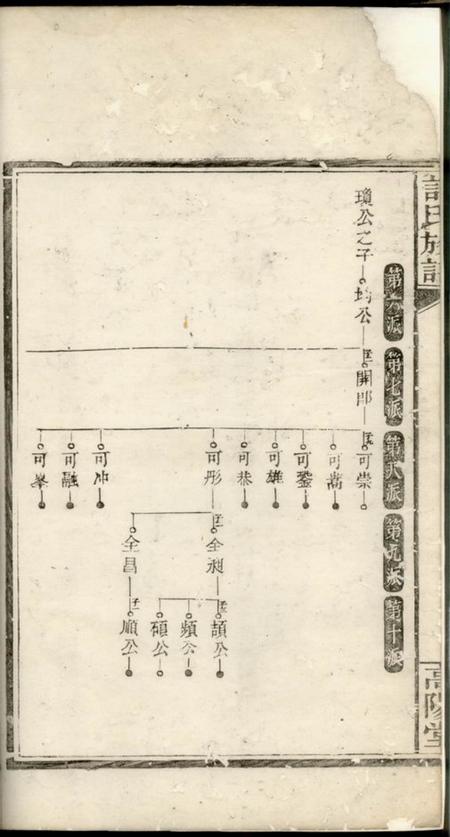 許氏族譜
高陽堂
第六派
第七派
第八派
第九派
第十派
瓊公之子
均公
開郎
可崇
可嵩
可鑒
可雄
可恭
可彤
可冲
可融
可峯
全昶
全昌
頡公
頻公
碩公
順公